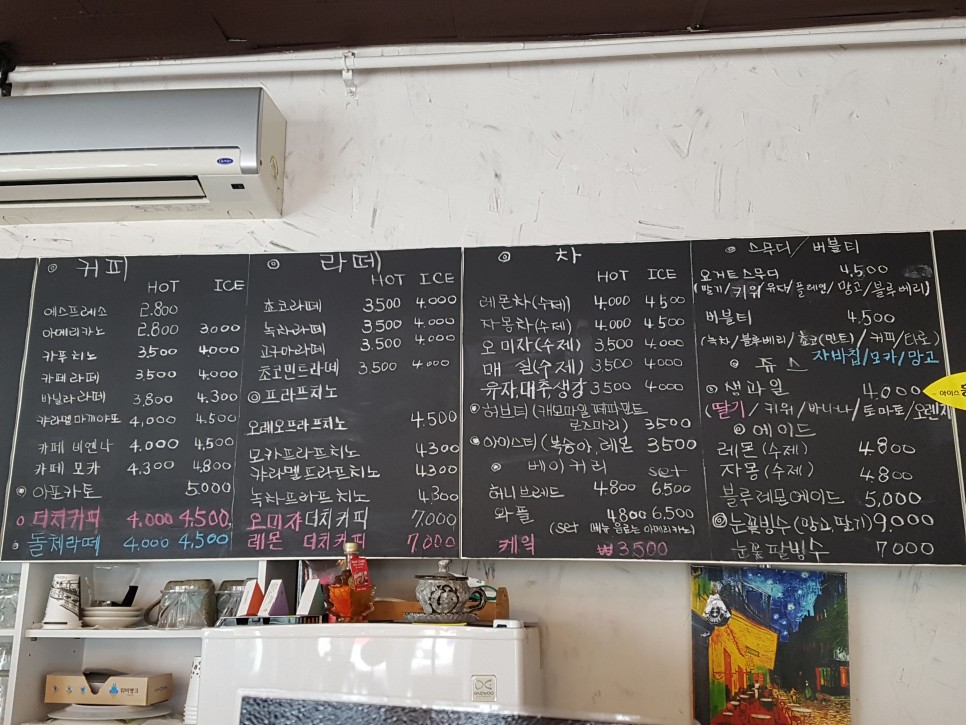 ◎ 커피
HOT ICE
에스프레소 2.800
아메리카노 2.800 3000
카푸치노 3,500 4000
카페라떼 3,500 4.000
바닐라라떼 3,800 4.300
캬라멜마끼야또 4,000 4,500
카페 비엔나 4.000 4,500
카페 모카 4,300 4,800
◎ 아포카토 5.000
더치커피 4.000 4,500
돌체라떼 4,000 4,500
◎ 라떼
HOT ICE
쵸코라떼 3500 4.000
녹차라떼 3500 4.000
고구마라떼 3.500 4.000
쵸코민트라떼 3,500 4.000
◎ 프라프치노
오레오프라프치노 4.500
모카프라프치노 4300
캬라멜프라프치노 4300
녹차프라프치노 4.300
오미자 더치커피 7,000
레몬 더치커피 7,000
◎ 차
HOT ICE
레몬차(수제) 4,000 4500
자몽차(수제) 4,000 4500
오미자(수제) 3,500 4.000
매실(수제) 3500 4000
유자,대추,생강 3500 4000
◎ 허브티(캐모마일,페파민트
로즈마리) 3500
◎ 아이스티(복숭아,레몬 3500
◎ 베이커리 set
허니브레드 4800 6,500
와플 4800 6,500
(set 메뉴 음료는 아메리카노)
케익 ₩3,500
◎ 스무디/버블티
요거트스무디 4,500
(딸기/키위/유자/플레인/망고/블루베리)
버블티 4,500
(녹차/블루베리/쵸코(민트)/커피/타로)
자바칩/모카/망고
◎ 쥬스
◎ 생과일 4.000
(딸기/키위/바나나/토마토/오렌지
◎ 에이드
레몬(수제) 4.800
자몽(수제) 4.800
블루레몬에이드 5,000
◎ 눈꽃빙수(망고,딸기) 9,000
눈꽃팥빙수 7000
아이스
DAEWOO